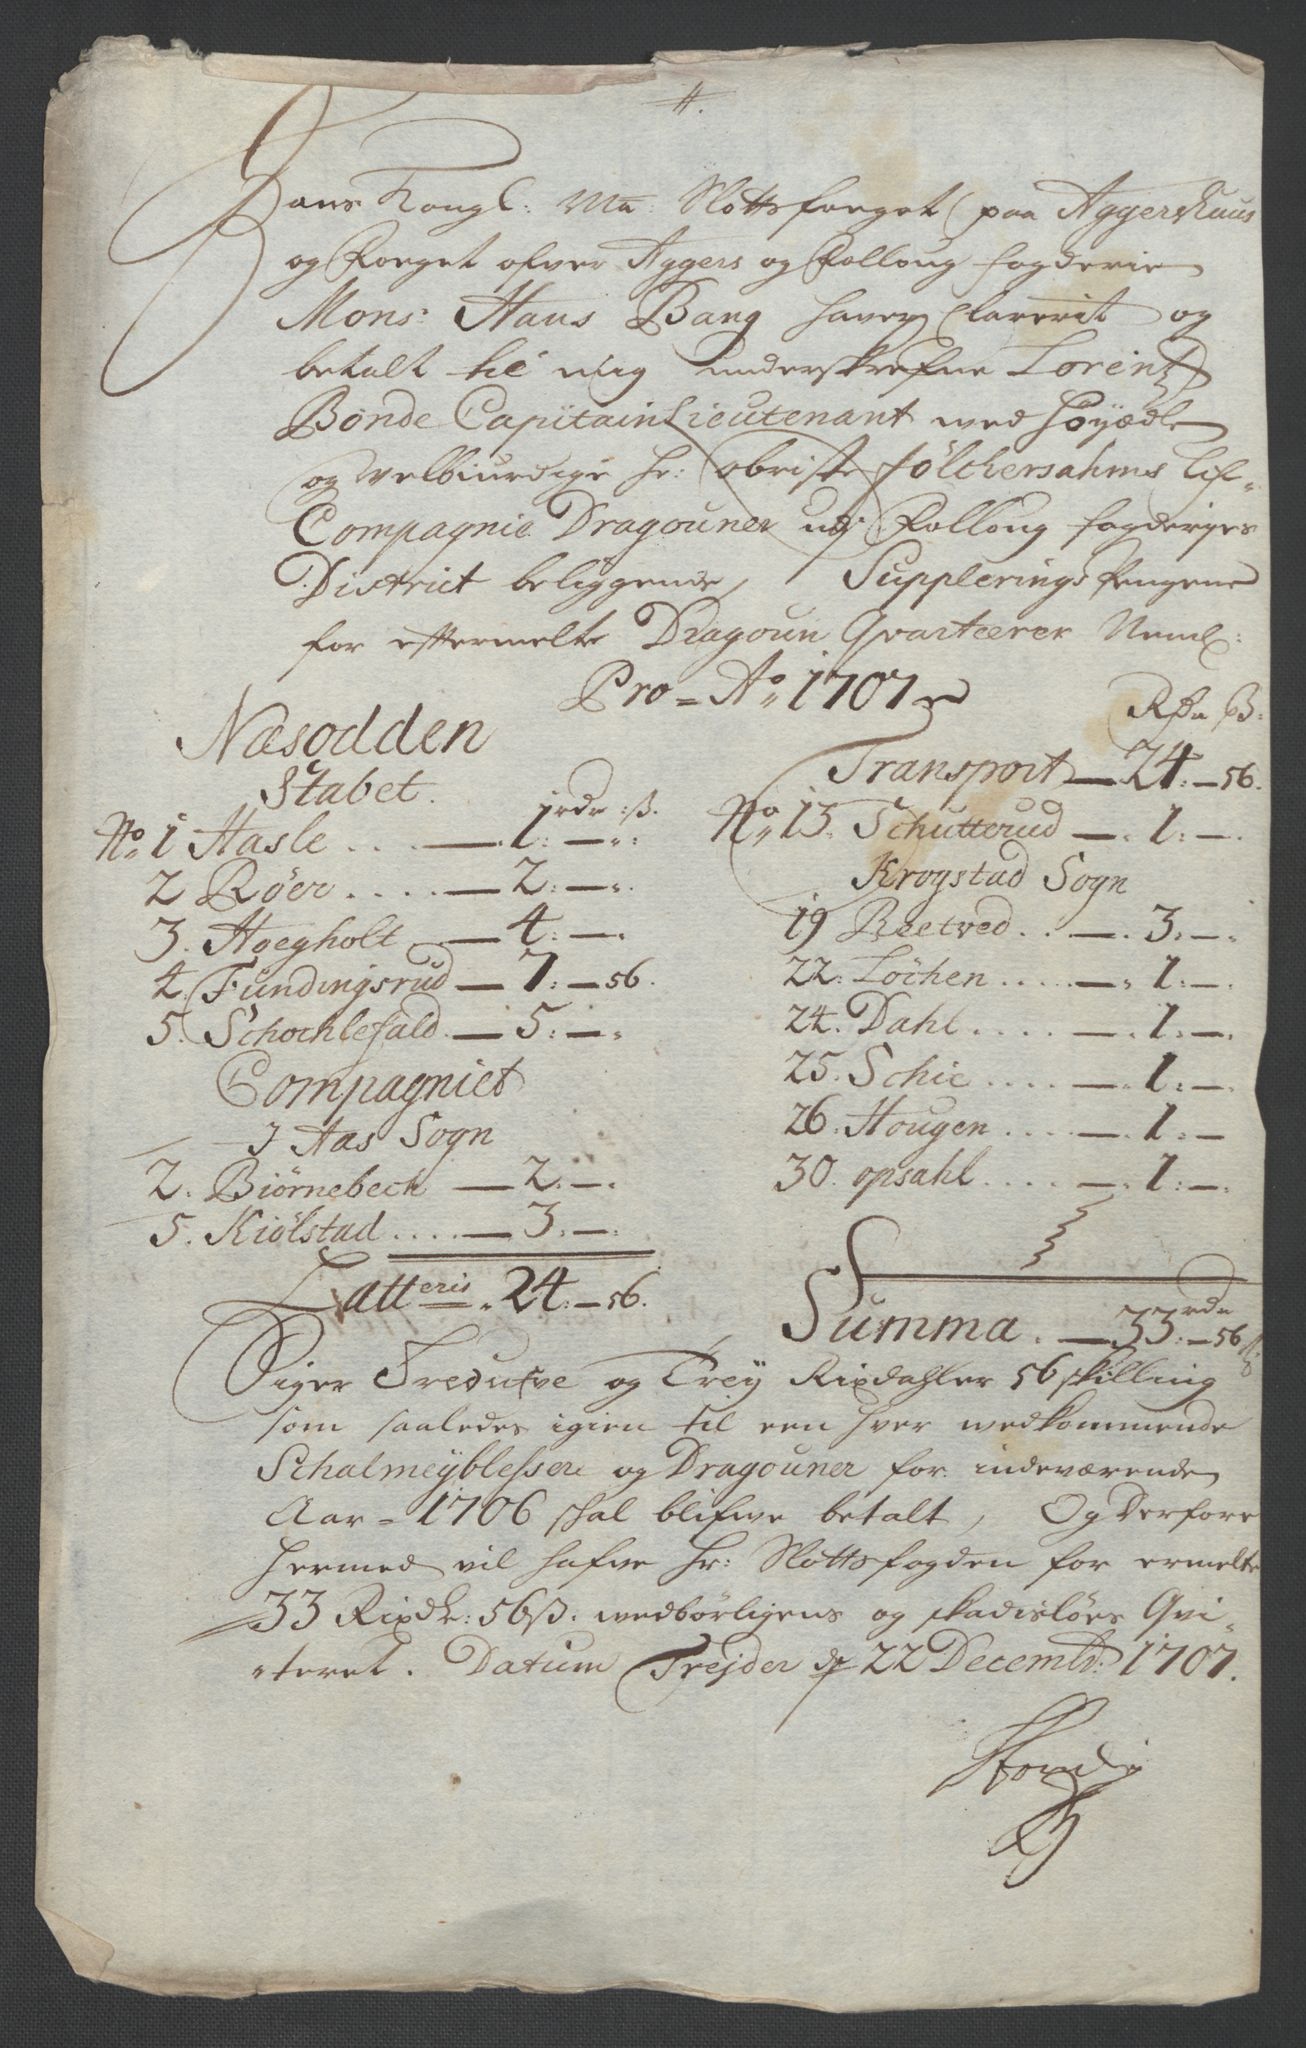 Hans Kongl: Ma: Slottsfoeget paa Aggershuus
og Foeget ofver Aggers og Folloug fogderie
Mons: Hans Bang haver Clarerit og
betalt til mig underskrefne Lorentz
Bonde Capitain Lieutenant ved Höyædle
og Velbiurdige hr: obriste Fölchersahms Lif-
Compagnie Dragouner udj Folloug fogderjes
District beliggende, Supplerings Pengene
for eftermelte Dragoun Qvarteerer Neml:
Pro = Ao 1707
Rdr ß:
Næsodden
Stabet.
rdr : ß.
No 1 Hasle .... — 1: — ":
2 Röer .... — 2: — ".
3. Hoegholt — 4: — ".
4. Fundingsrud — 7: — 56.
5. Schochlefald — 5: — ".
Compagniet
I Aas Sogn
2. Biörnebech — 2. — ".
5. Kiölstad .... — 3: — ".
Latteris " 24: — 56.
Transport — 24: — 56.
No 15. Schutterud — . 1: — .
Krogstad Sogn
19 Beetved .. — . 3: — .
22. Löchen .... — " 1: — .
24. Dahl .... — . 1: — .
25. Schie .... — " 1: — .
26. Hougen .... — . 1: —
30. opsahl .... — . 1: — .
Summa . — 33: rdr — 56 ß:
Siger Tredufve og Trey Rixdahler 56 skilling
som saaledes igien til een hver vedkommende
Schalmeyblessere og Dragouner for indeværende
Aar = 1706 skal blifve betalt, Og derfore
hermed vil hafve hr: Slottsfogden for ermelte
33 Rixdr: 56 ß. vedbörligens og skadislöes Qvi-
"teret. Datum Trejder d 22 Decembr: 1707.